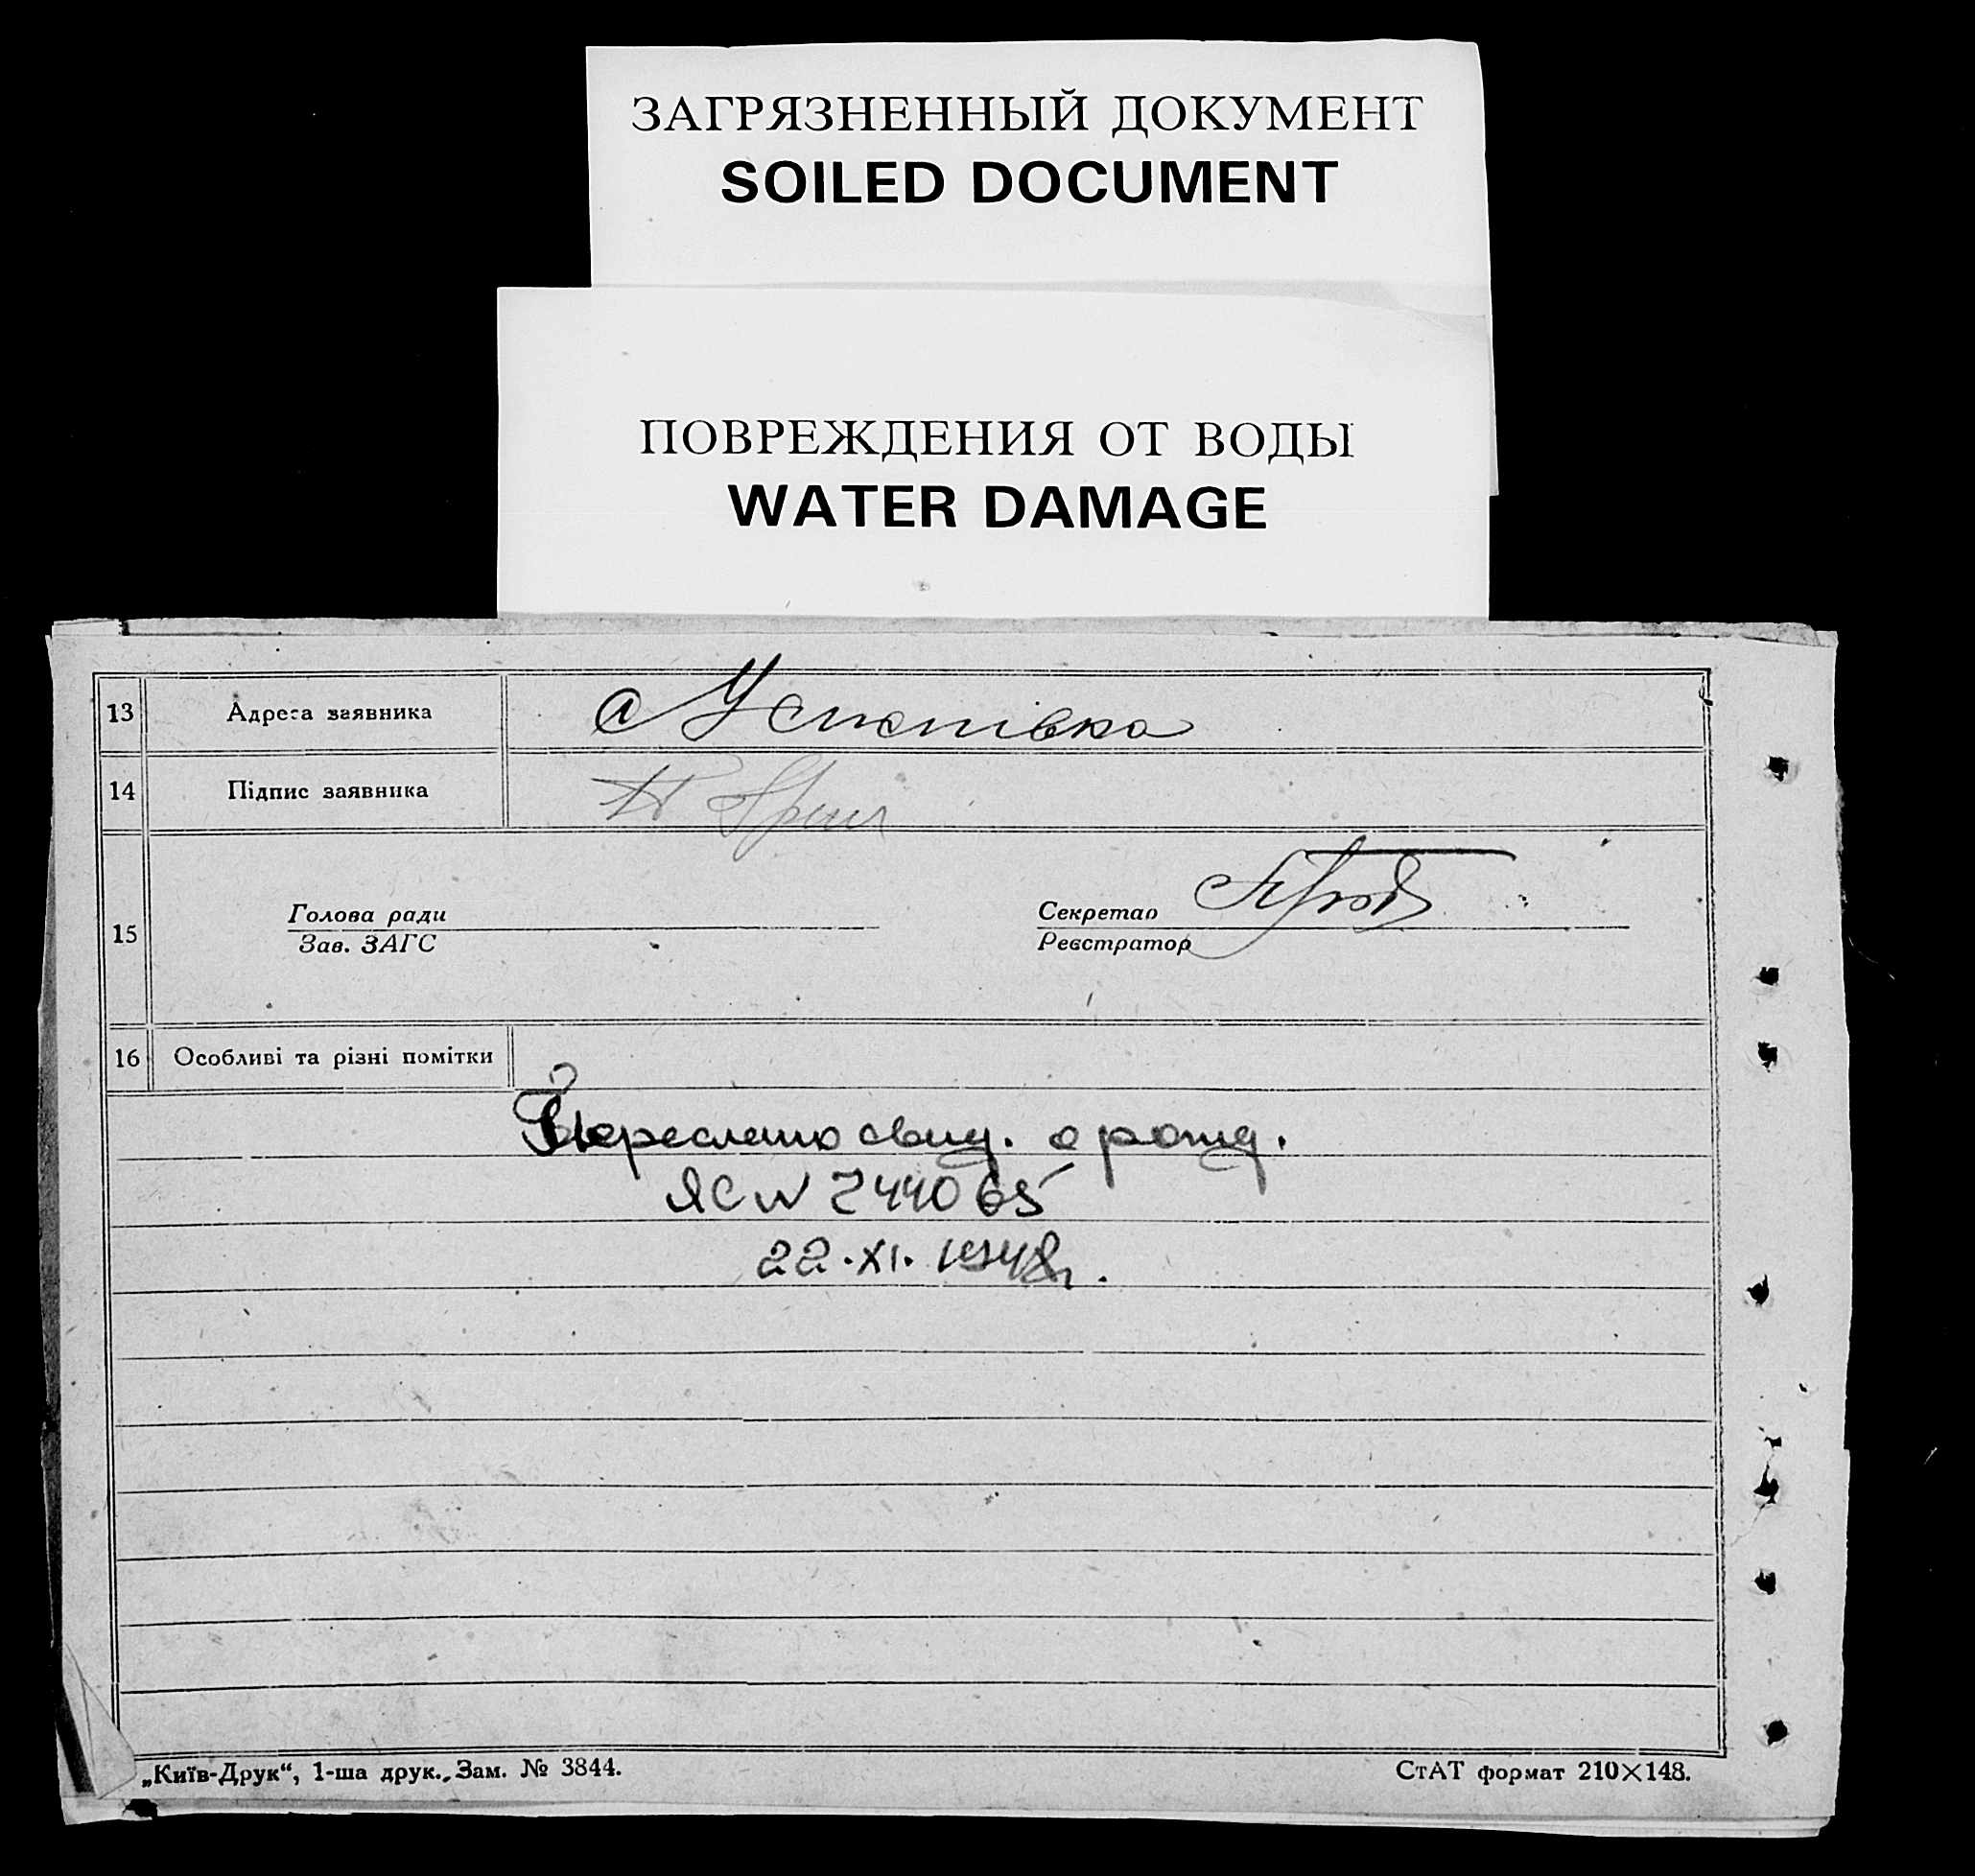 ЗАГРЯЗНЕННЫЙ ДОКУМЕНТ
SOILED DOCUMENT
ПОВРЕЖДЕНИЯ ОТ ВОДЫ
WATER DAMAGE
13 Адреса заявника с
14 Підпис заявника
15 Голова ради Секретар
Зав. ЗАГС Реєстратор
16 Особливі та різні помітки
Переслано свид. о рожд.
ЯС № 244065
22.XI.1948г.
„Київ-Друк“, 1-ша друк., Зам. № 3844.
СтАТ формат 210×148.